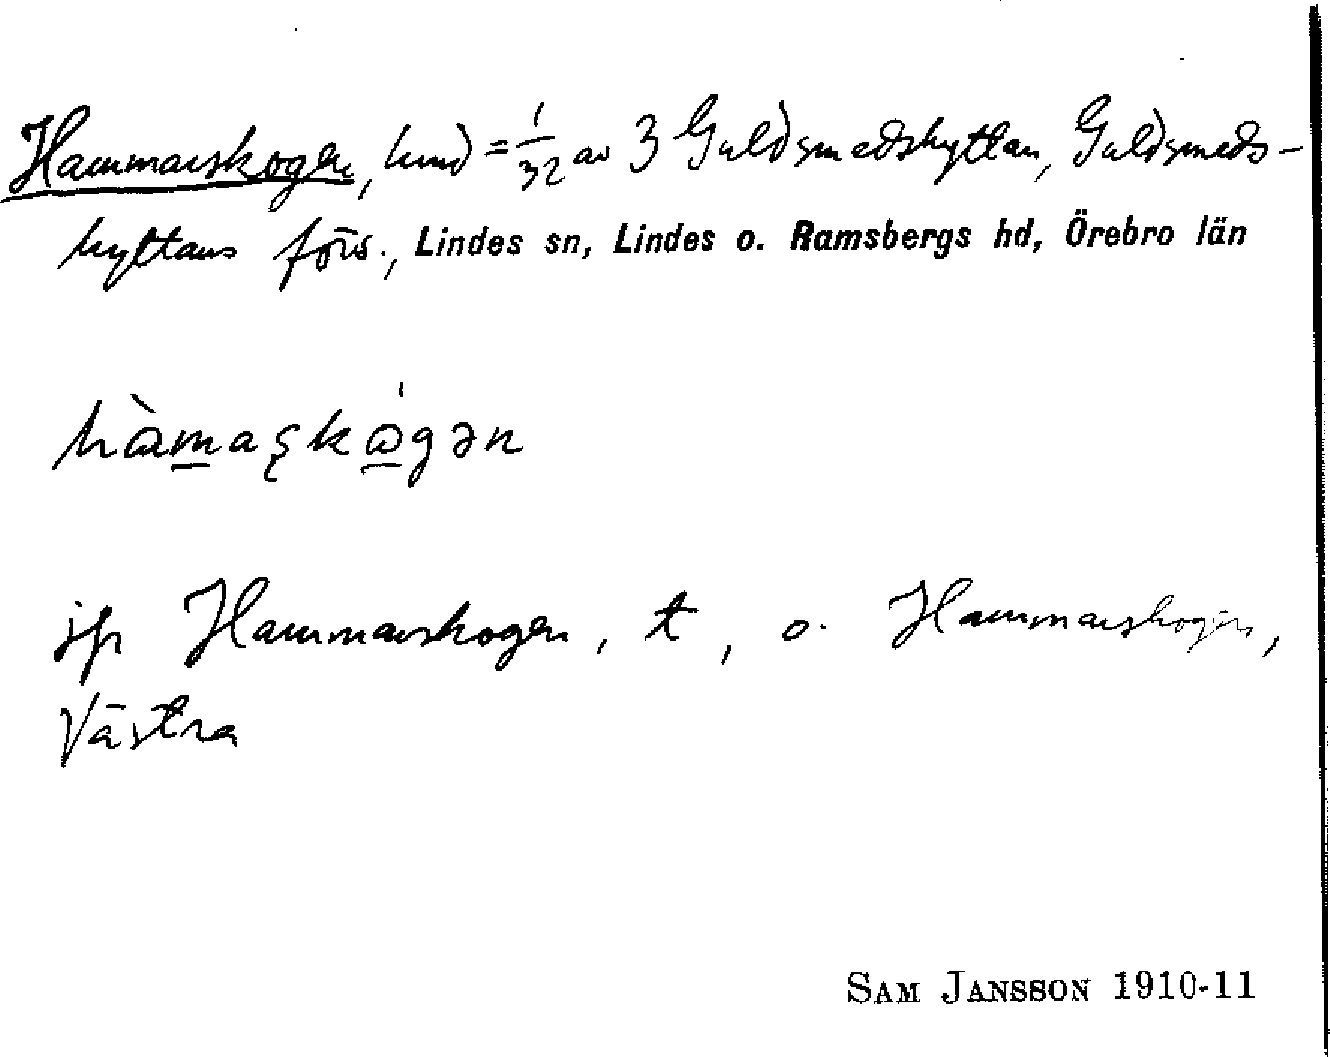 Hammarskogen, hmd = 1/32 av 3 Guldsmedshyttan, Guldsmeds-
hyttans förs., Lindes sn, Lindes o. Ramsbergs hd, Örebro län
hàmaʂkɷ́gən
jfr Hammarskogen, t, o. Hammarskogen,
Västra
SAM JANSSON 1910-11